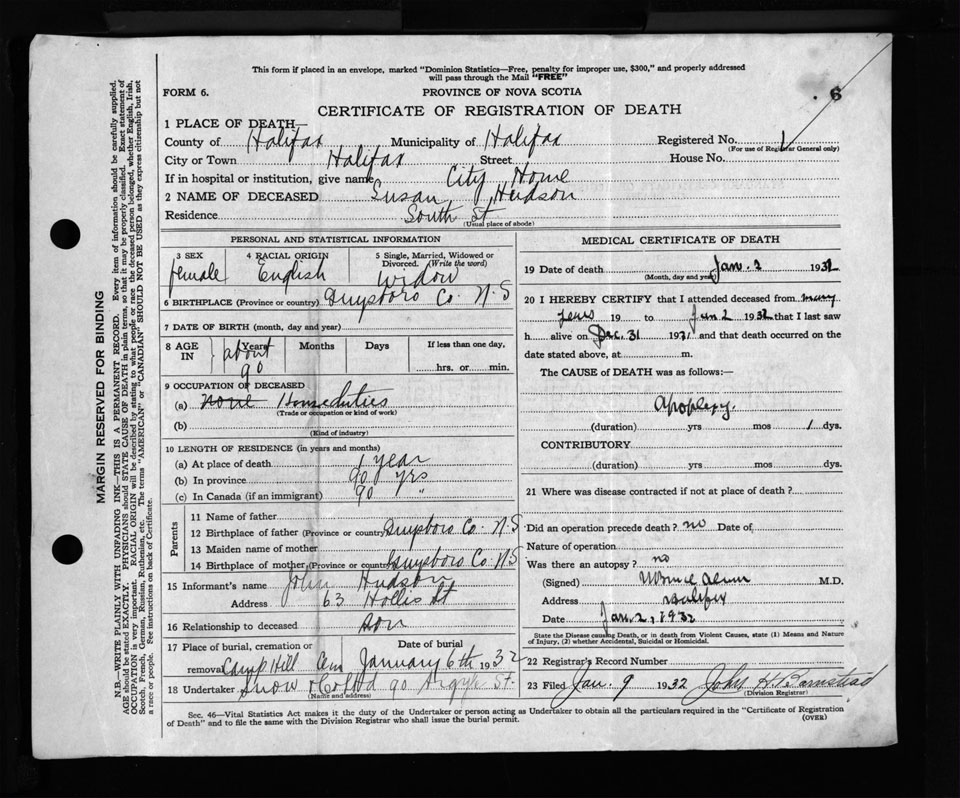 This form if placed in an envelope, marked "Dominion Statistics—Free, penalty for improper use, $300," and properly addressed
will pass through the Mail "FREE"
FORM 6.
PROVINCE OF NOVA SCOTIA
6
CERTIFICATE OF REGISTRATION OF DEATH
1 PLACE OF DEATH—
County of Halifax Municipality of Halifax Registered No. 1
(For use of Registrar General only)
City or Town Halifax Street House No.
If in hospital or institution, give name City Home
2 NAME OF DECEASED Susan Hudson
Residence South St
(Usual place of abode)
PERSONAL AND STATISTICAL INFORMATION
3 SEX 4 RACIAL ORIGIN 5 Single, Married, Widowed or
Divorced. (Write the word)
female English Widow
6 BIRTHPLACE (Province or country) Guysboro Co. N.S
7 DATE OF BIRTH (month, day and year)
8 AGE IN Years Months Days If less than one day,
about
90 hrs. or min.
9 OCCUPATION OF DECEASED
(a) none Home duties
(Trade or occupation or kind of work)
(b)
(Kind of industry)
10 LENGTH OF RESIDENCE (in years and months)
(a) At place of death 1 year
(b) In province 90 yrs
(c) In Canada (if an immigrant) 90 "
Parents
11 Name of father
12 Birthplace of father (Province or country) Guysboro Co. N.S
13 Maiden name of mother
14 Birthplace of mother (Province or country) Guysboro Co. N.S
15 Informant's name John Hudson
Address 63 Hollis St
16 Relationship to deceased son
17 Place of burial, cremation or Date of burial
removal Camp Hill Cem January 6th 1932
18 Undertaker Snow & Co Ltd 90 Argyle St.
(Name and address)
MEDICAL CERTIFICATE OF DEATH
19 Date of death Jan. 2 1932
(Month, day and year)
20 I HEREBY CERTIFY that I attended deceased from many
years 19 to Jan 2 1932 that I last saw
h alive on Dec. 31 1931 and that death occurred on the
date stated above, at m.
The CAUSE of DEATH was as follows:—
Apoplexy.
(duration) yrs mos 1 dys.
CONTRIBUTORY
(duration) yrs mos dys.
21 Where was disease contracted if not at place of death?
Did an operation precede death? no Date of
Nature of operation
Was there an autopsy? no
(Signed) M.D.
Address Halifax
Date Jan. 2, 1932
State the Disease causing Death, or in death from Violent Causes, state (1) Means and Nature
of Injury, (2) whether Accidental, Suicidal or Homicidal.
22 Registrar's Record Number
23 Filed Jan. 9 1932 John H. Barnstead
(Division Registrar)
Sec. 46—Vital Statistics Act makes it the duty of the Undertaker or person acting as Undertaker to obtain all the particulars required in the "Certificate of Registration
of Death" and to file the same with the Division Registrar who shall issue the burial permit. (OVER)
MARGIN RESERVED FOR BINDING
N.B.—WRITE PLAINLY WITH UNFADING INK—THIS IS A PERMANENT RECORD. Every item of information should be carefully supplied.
AGE should be stated EXACTLY. PHYSICIANS should STATE CAUSE OF DEATH in plain terms, so that it may be properly classified. Exact statement of
OCCUPATION is very important. RACIAL ORIGIN will be described by stating to what people or race the deceased person belonged, whether English, Irish,
Scotch, French, German, Russian, Ruthenian, etc. The terms "AMERICAN" or "CANADIAN" SHOULD NOT BE USED as they express citizenship but not
a race or people. See instructions on back of Certificate.